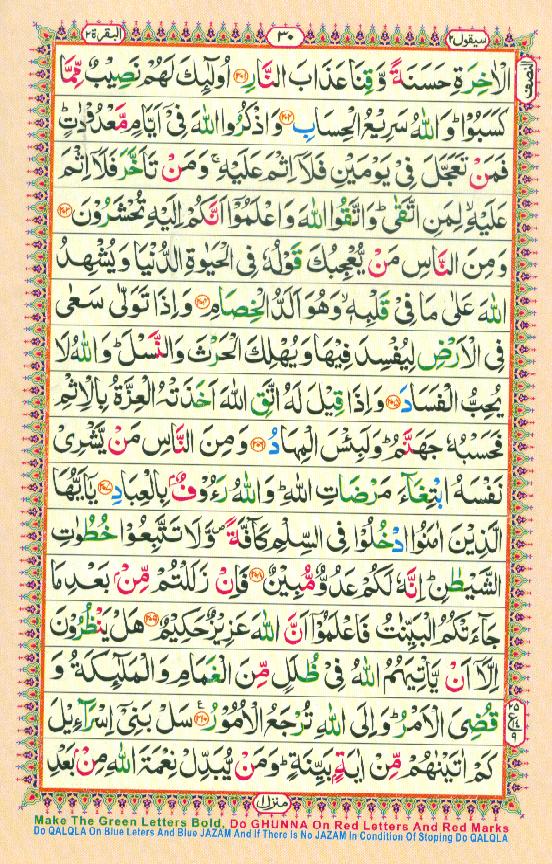 البقرة ٢
٣٠
سيقول ٢
النصف
الْاٰخِرَةِ حَسَنَةً وَّقِنَا عَذَابَ النَّارِ ﴿۲۰۱﴾ اُولٰٓئِكَ لَهُمْ نَصِيْبٌ مِّمَّا
كَسَبُوْا ؕ وَاللّٰهُ سَرِيْعُ الْحِسَابِ ﴿۲۰۲﴾ وَاذْكُرُوا اللّٰهَ فِىْٓ اَيَّامٍ مَّعْدُوْدٰتٍ ؕ
فَمَنْ تَعَجَّلَ فِىْ يَوْمَيْنِ فَلَاۤ اِثْمَ عَلَيْهِ ۚ وَمَنْ تَاَخَّرَ فَلَاۤ اِثْمَ
عَلَيْهِ ۙ لِمَنِ اتَّقٰى ؕ وَاتَّقُوا اللّٰهَ وَاعْلَمُوْٓا اَنَّكُمْ اِلَيْهِ تُحْشَرُوْنَ ﴿۲۰۳﴾
وَمِنَ النَّاسِ مَنْ يُّعْجِبُكَ قَوْلُهٗ فِى الْحَيٰوةِ الدُّنْيَا وَيُشْهِدُ
اللّٰهَ عَلٰى مَا فِىْ قَلْبِهٖ ۙ وَهُوَ اَلَدُّ الْخِصَامِ ﴿۲۰۴﴾ وَاِذَا تَوَلّٰى سَعٰى
فِى الْاَرْضِ لِيُفْسِدَ فِيْهَا وَيُهْلِكَ الْحَرْثَ وَالنَّسْلَ ؕ وَاللّٰهُ لَا
يُحِبُّ الْفَسَادَ ﴿۲۰۵﴾ وَاِذَا قِيْلَ لَهُ اتَّقِ اللّٰهَ اَخَذَتْهُ الْعِزَّةُ بِالْاِثْمِ
فَحَسْبُهٗ جَهَنَّمُ ؕ وَلَبِئْسَ الْمِهَادُ ﴿۲۰۶﴾ وَمِنَ النَّاسِ مَنْ يَّشْرِىْ
نَفْسَهُ ابْتِغَآءَ مَرْضَاتِ اللّٰهِ ؕ وَاللّٰهُ رَءُوْفٌۢ بِالْعِبَادِ ﴿۲۰۷﴾ يٰٓاَيُّهَا
الَّذِيْنَ اٰمَنُوا ادْخُلُوْا فِى السِّلْمِ كَآفَّةً ۪ وَّلَا تَتَّبِعُوْا خُطُوٰتِ
الشَّيْطٰنِ ؕ اِنَّهٗ لَكُمْ عَدُوٌّ مُّبِيْنٌ ﴿۲۰۸﴾ فَاِنْ زَلَلْتُمْ مِّنْۢ بَعْدِ مَا
جَآءَتْكُمُ الْبَيِّنٰتُ فَاعْلَمُوْٓا اَنَّ اللّٰهَ عَزِيْزٌ حَكِيْمٌ ﴿۲۰۹﴾ هَلْ يَنْظُرُوْنَ
اِلَّاۤ اَنْ يَّاْتِيَهُمُ اللّٰهُ فِىْ ظُلَلٍ مِّنَ الْغَمَامِ وَالْمَلٰٓئِكَةُ وَ
قُضِىَ الْاَمْرُ ؕ وَاِلَى اللّٰهِ تُرْجَعُ الْاُمُوْرُ ﴿۲۱۰﴾ سَلْ بَنِىْٓ اِسْرَآءِيْلَ
كَمْ اٰتَيْنٰهُمْ مِّنْ اٰيَةٍۢ بَيِّنَةٍ ؕ وَمَنْ يُّبَدِّلْ نِعْمَةَ اللّٰهِ مِنْۢ بَعْدِ
منزل ١
Make The Green Letters Bold, Do GHUNNA On Red Letters And Red Marks
Do QALQLA On Blue Leters And Blue JAZAM And If There Is No JAZAM In Condition Of Stoping Do QALQLA